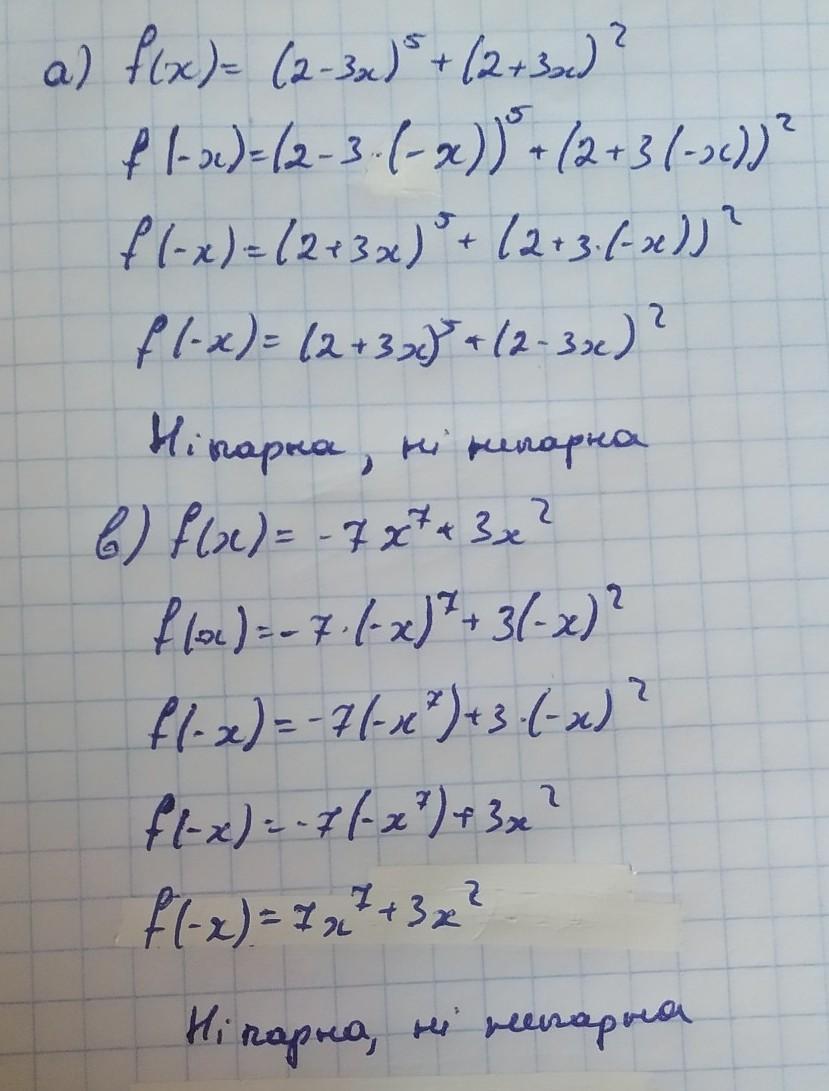 а) f(x) = (2-3x)⁵ + (2+3x)²
f(-x) = (2-3·(-x))⁵ + (2+3(-x))²
f(-x) = (2+3x)⁵ + (2+3·(-x))²
f(-x) = (2+3x)⁵ + (2-3x)²
Ні парна, ні непарна
в) f(x) = -7x⁷ + 3x²
f(x) = -7·(-x)⁷ + 3(-x)²
f(-x) = -7(-x⁷) + 3·(-x)²
f(-x) = -7(-x⁷) + 3x²
f(-x) = 7x⁷ + 3x²
Ні парна, ні непарна